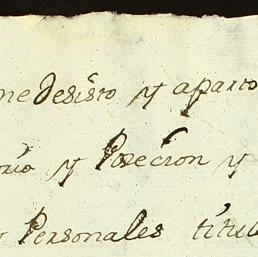 me desisto y aparto
y Posecion y
Personales titul